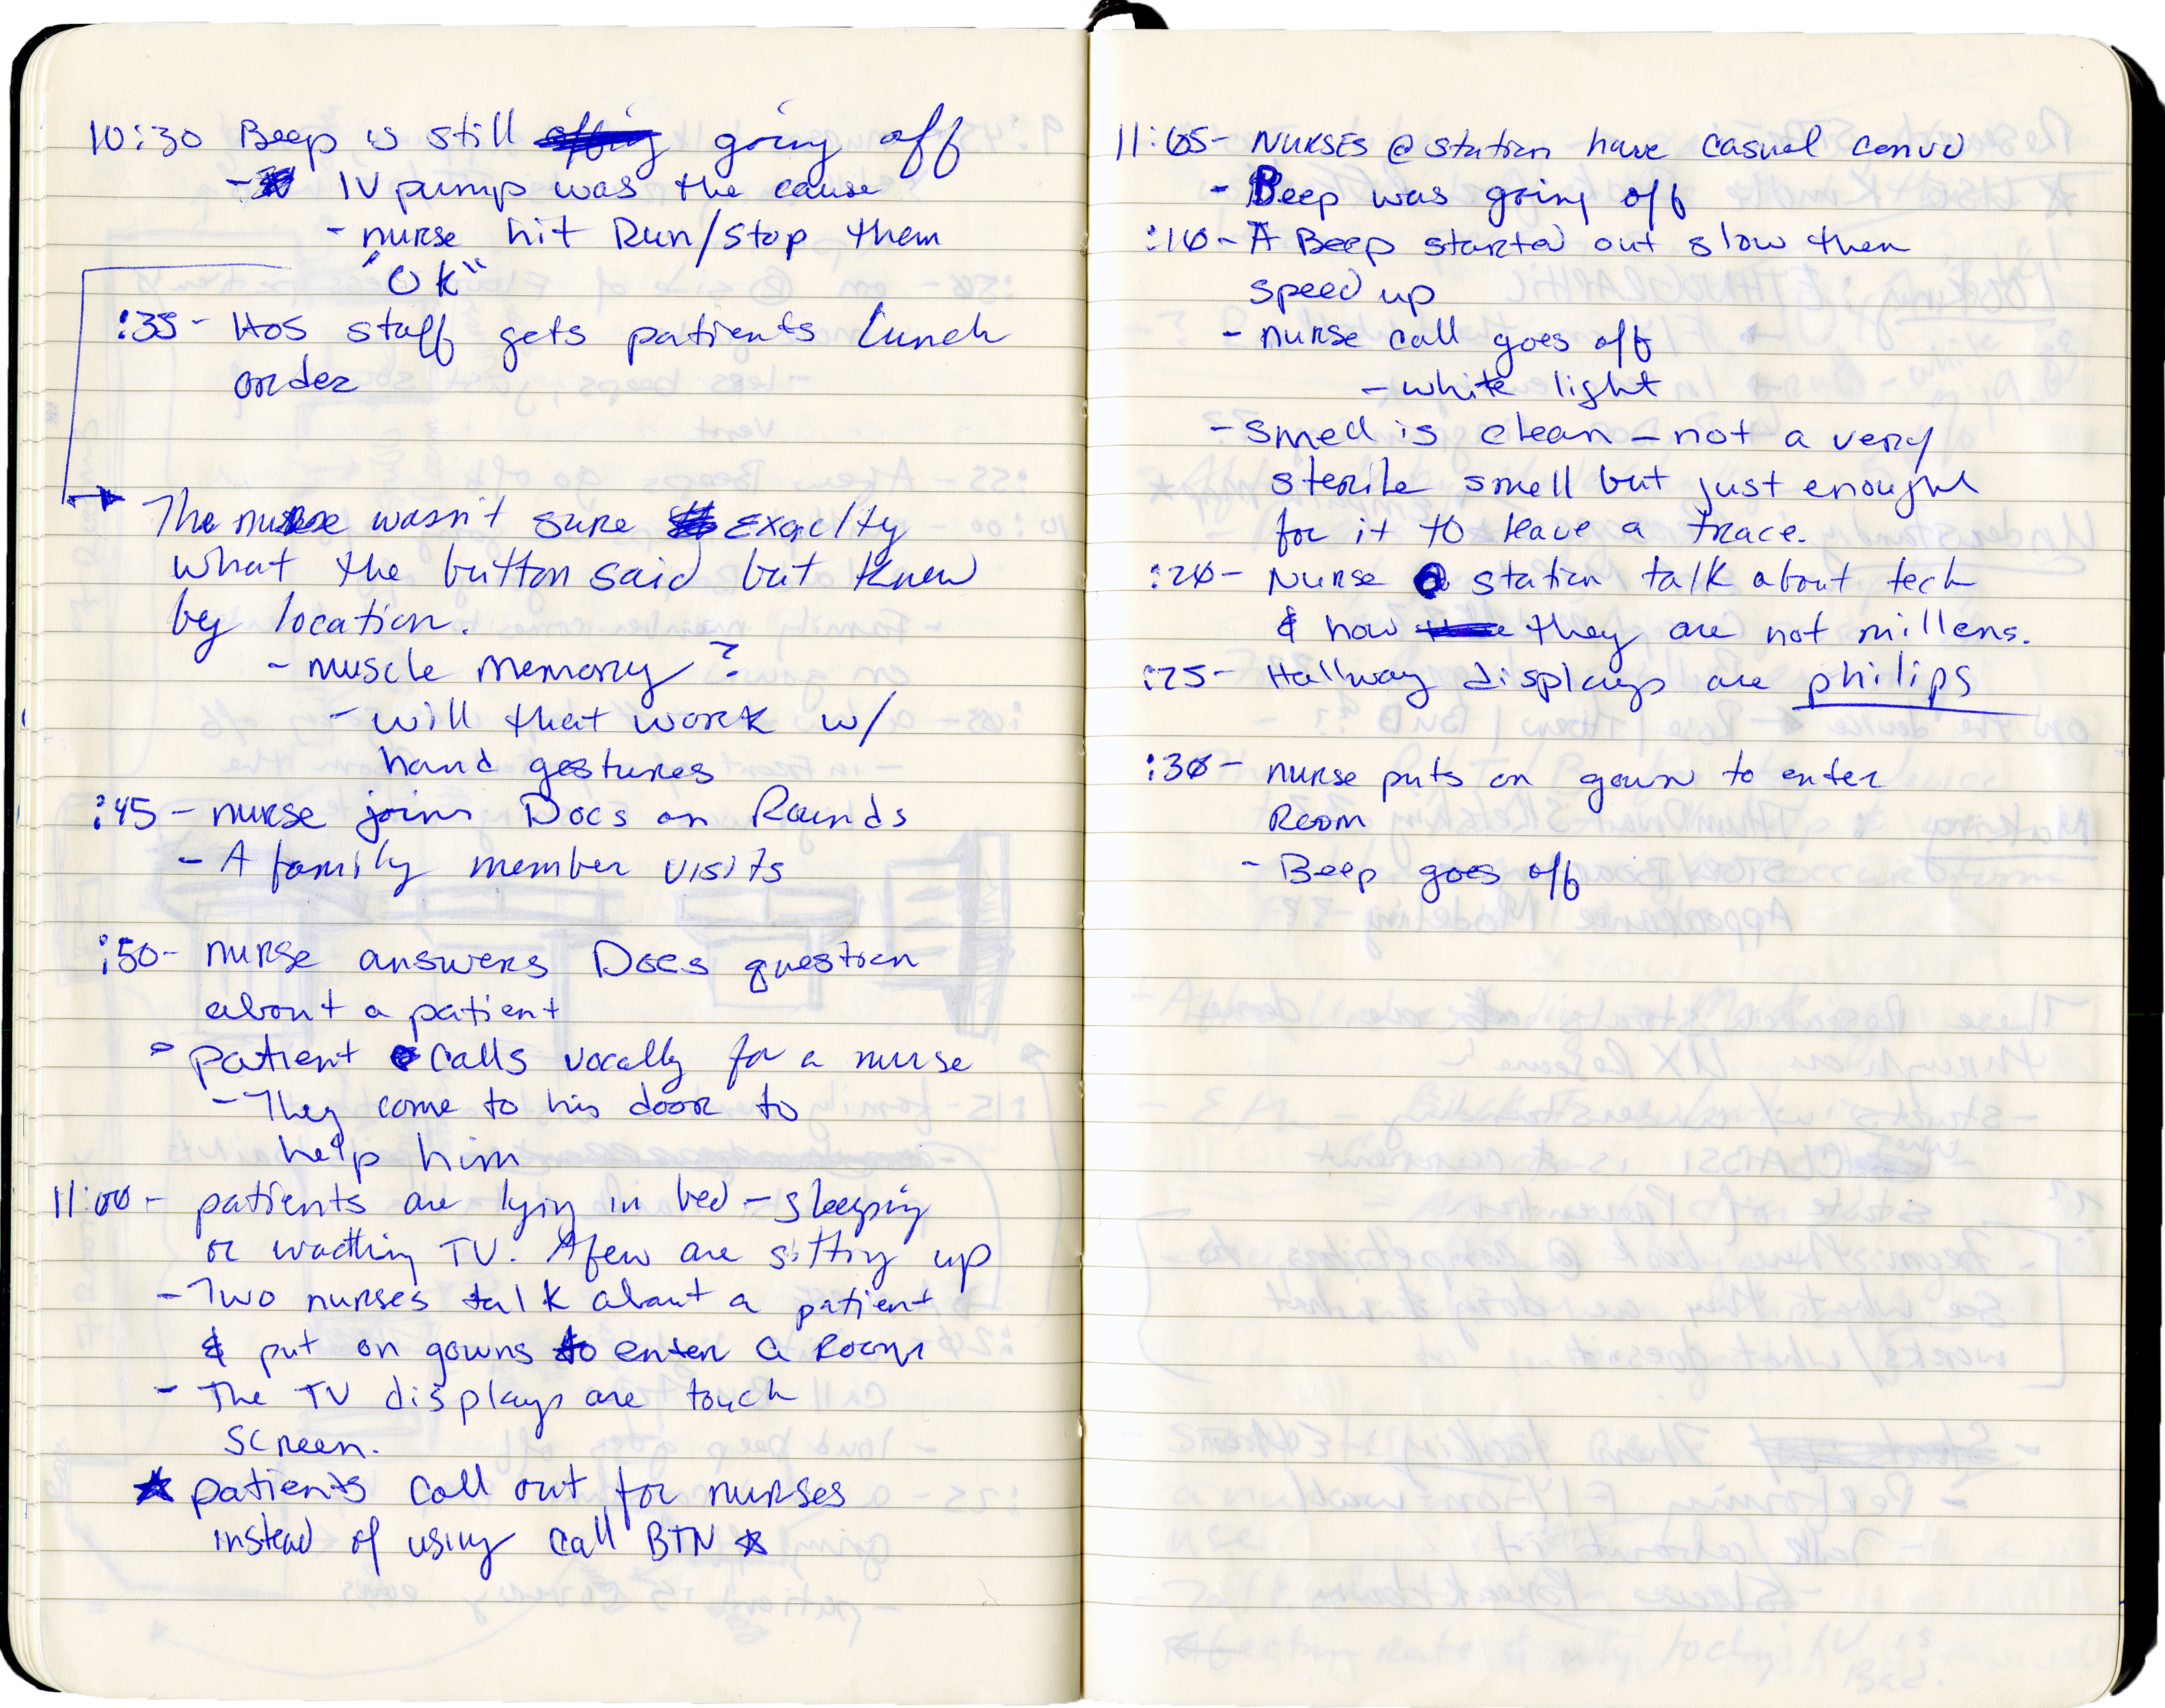 10:30 Beep is still going off
- IV pump was the cause
- nurse hit Run/Stop them
"OK"
:35- Hos staff gets patients lunch
order
The nurse wasn't sure exaclty
what the button said but knew
by location.
- muscle memory?
- will that work w/
hand gestures
:45- nurse joins Docs on Rounds
- A family member visits
:50- nurse answers Docs question
about a patient
- patient calls vocally for a nurse
- They come to his door to
help him
11:00- patients are lying in bed - sleeping
or wacthing TV. A few are sitting up
- Two nurses talk about a patient
& put on gowns to enter a Room
- The TV displays are touch
screen.
★ patients call out for nurses
instead of using call BTN ★
11:05- Nurses @ station have casual convo
- Beep was going off
:10- A Beep started out slow then
speed up
- nurse call goes off
- white light
- smell is clean - not a very
sterile smell but just enough
for it to leave a trace.
:20- Nurse @ station talk about tech
& how they are not millens.
:25- Hallway displays are philips
:30- nurse puts on gown to enter
Room
- Beep goes off